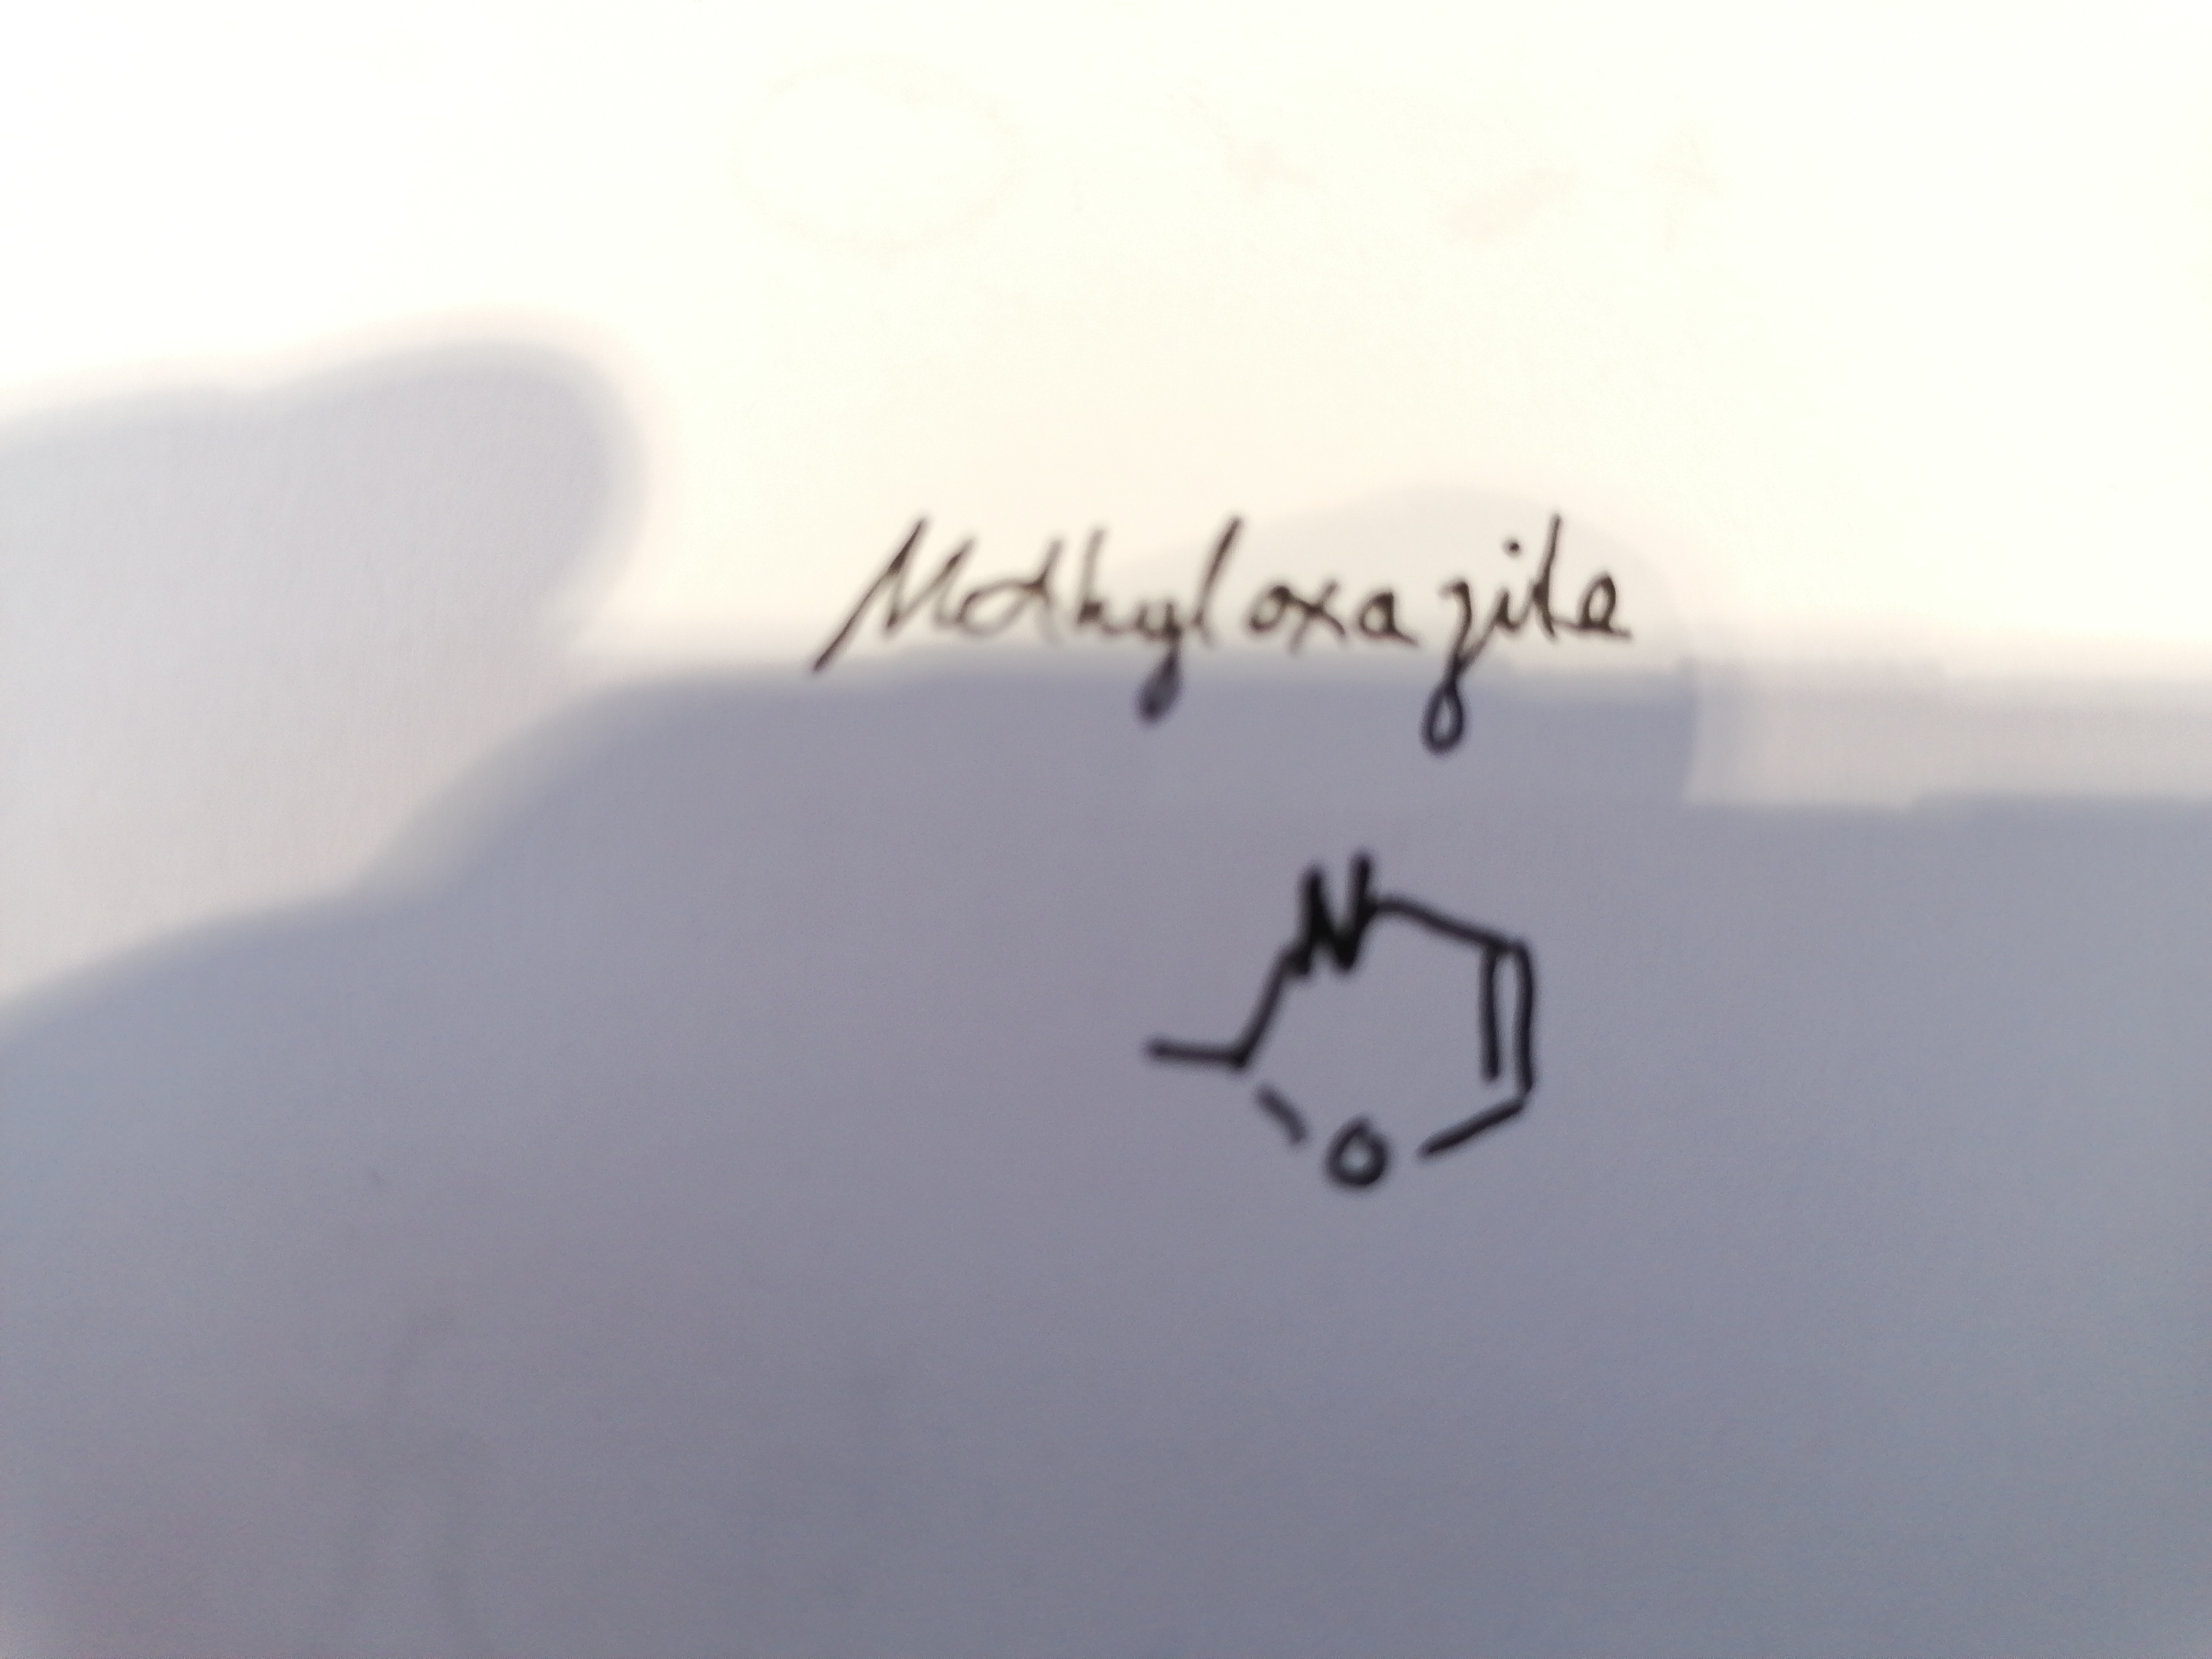 Methyloxazile
N
O